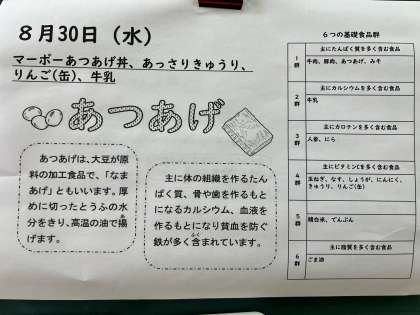 8月30日（水）
マーボーあつあげ丼、あっさりきゅうり、
りんご(缶)、牛乳
あつあげ
あつあげは、大豆が原
料の加工食品で、「なま
あげ」ともいいます。厚
めに切ったとうふの水
分をきり、高温の油で揚
げます。
主に体の組織を作るたん
ぱく質、骨や歯を作るもと
になるカルシウム、血液を
作るもとになり貧血を防ぐ
鉄が多く含まれています。
6つの基礎食品群
1群
主にたんぱく質を多く含む食品
牛肉、豚肉、あつあげ、みそ
2群
主にカルシウムを多く含む食品
牛乳
3群
主にカロテンを多く含む食品
人参、にら
4群
主にビタミンCを多く含む食品
玉ねぎ、なす、しょうが、にんにく、
きゅうり、りんご(缶)
5群
精白米、でんぷん
6群
主に脂質を多く含む食品
ごま油